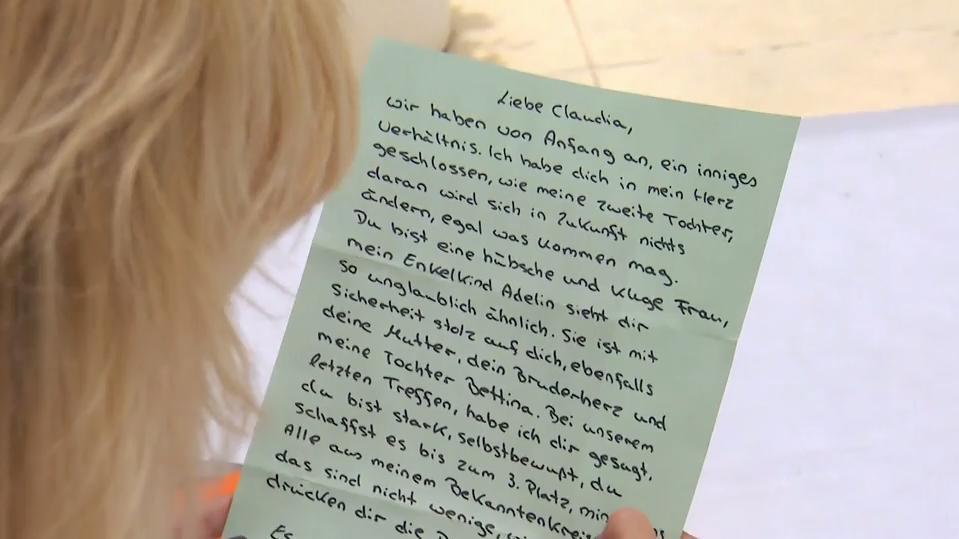 Liebe Claudia,
wir haben von Anfang an, ein inniges
Verhältnis. Ich habe dich in mein Herz
geschlossen, wie meine zweite Tochter,
daran wird sich in Zukunft nichts
ändern, egal was kommen mag.
Du bist eine hübsche und kluge Frau,
mein Enkelkind Adelin sieht dir
so unglaublich ähnlich. Sie ist mit
Sicherheit stolz auf dich, ebenfalls
deine Mutter, dein Bruderherz und
meine Tochter Bettina. Bei unserem
letzten Treffen, habe ich dir gesagt,
du bist stark, selbstbewußt, du
schaffst es bis zum 3. Platz,
Alle aus meinem Bekanntenkreis
das sind nicht wenige,
drücken dir die
Es